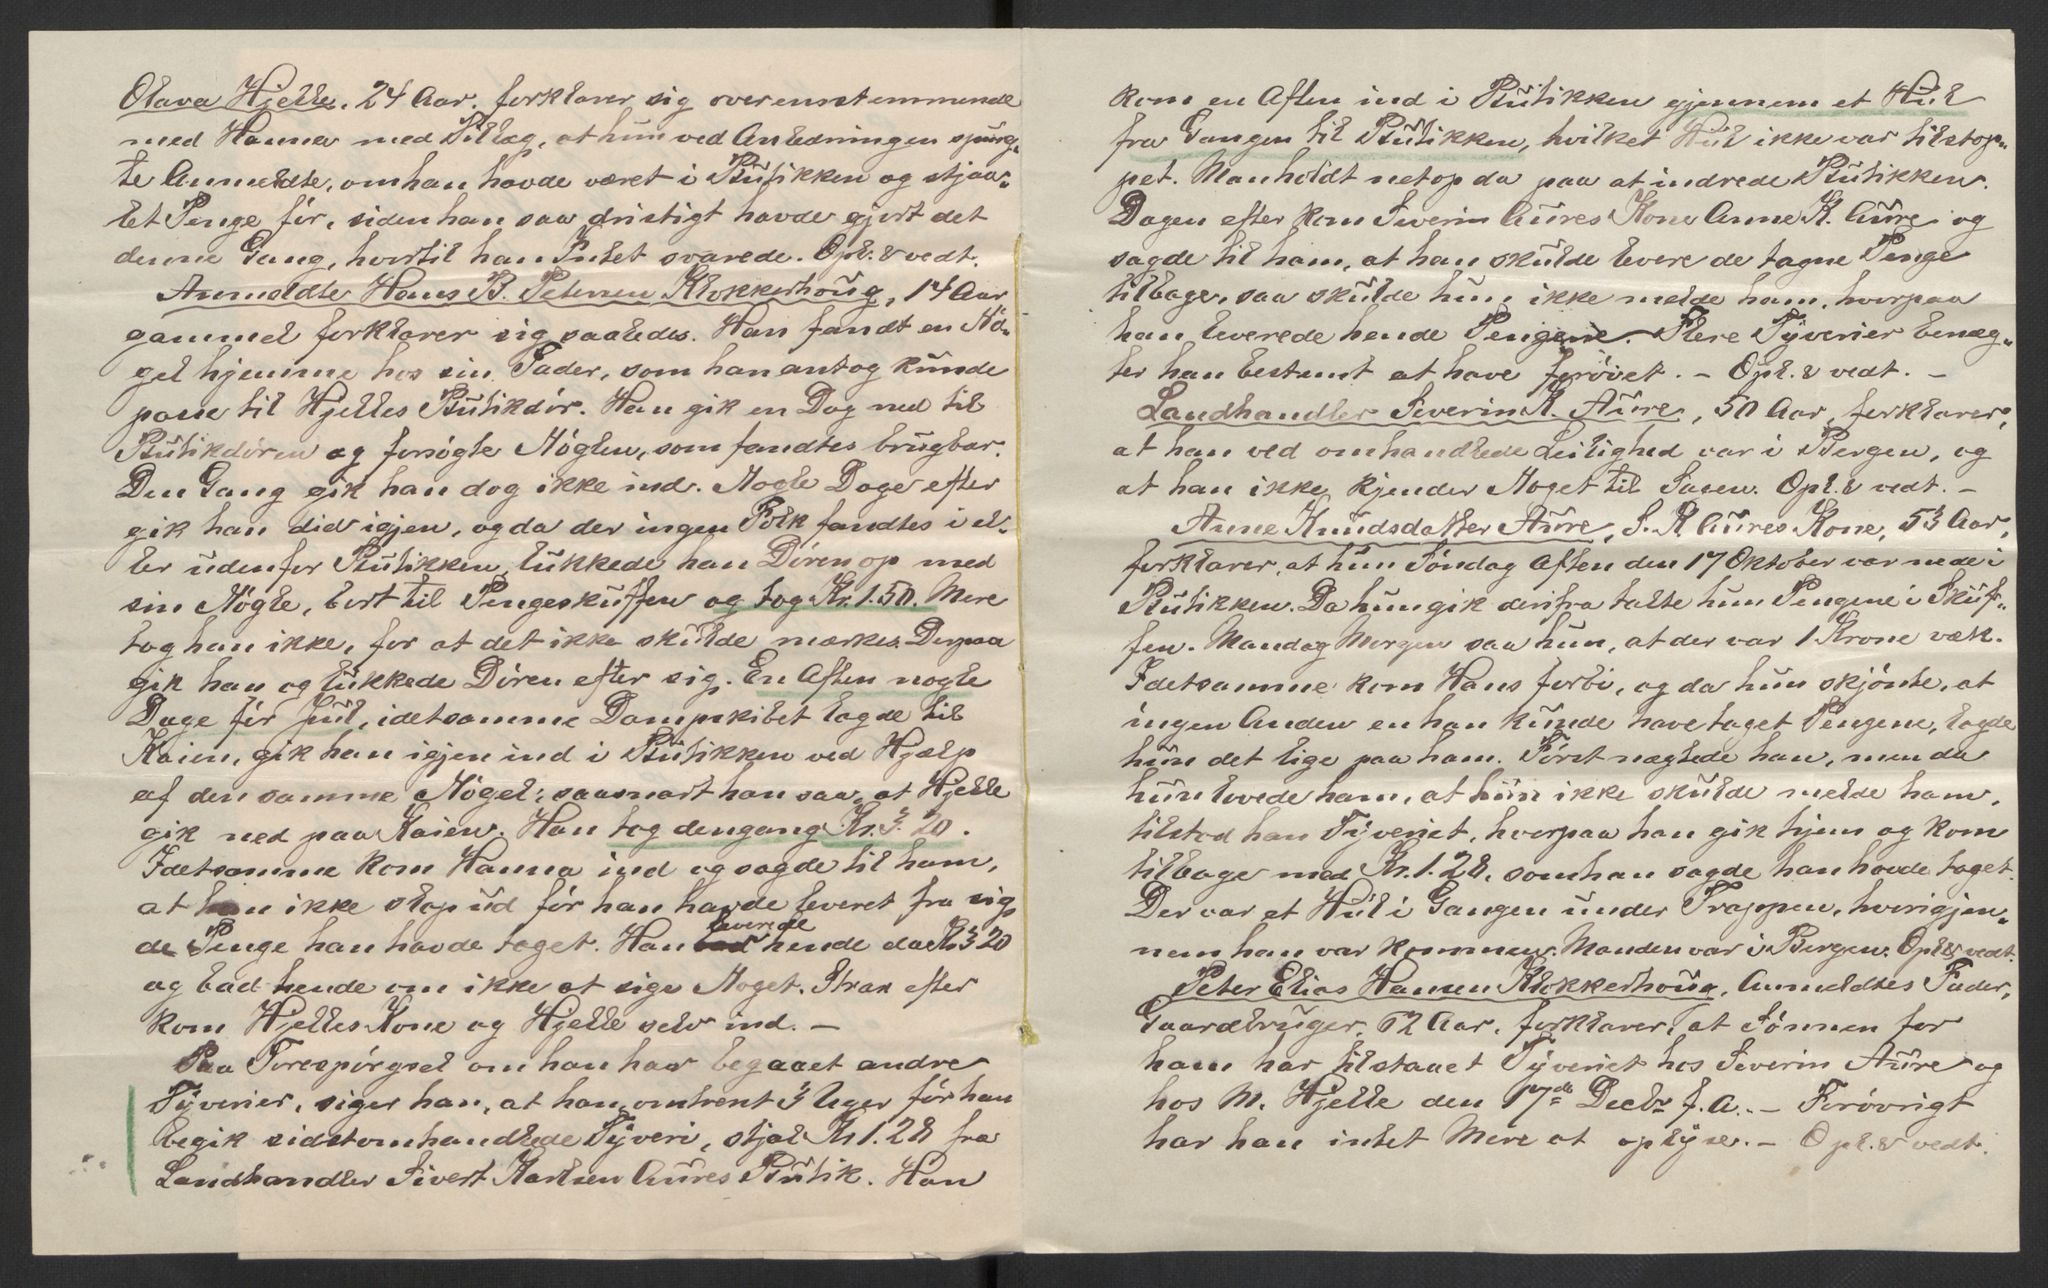 Olava Hjelle, 24 Aar, forklarer sig overensstemmende
med Hanna med Tillæg, at hun ved Anledningen spurg-
te Anmeldte, om han havde været i Butikken og stjaa-
let Penge før, siden han saa dristigt havde gjort det
denne Gang, hvortil han Intet svarede. Opl. & vedt.
Anmeldte Hans B. Petersen Klokkerhoug, 14 Aar
gammel forklarer sig saaledes. Han fandt en Nø-
gel hjemme hos sin Fader, som han antog kunde
passe til Hjelles Butikdør. Han gik en Dag ned til
Butikdøren og forsøgte Nøglen, som fandtes brugbar.
Den Gang gik han dog ikke ind. Nogle Dage efter
gik han did igjen, og da der ingen Folk fandtes i el-
ler udenfor Butikken, lukkede han Døren op med
sin Nøgle, bort til Pengeskuffen og tog Kr. 1.50. Mere
tog han ikke, for at det ikke skulde mærkes. Derpaa
gik han og lukkede Døren efter sig. En Aften nogle
Dage før Jul, idetsamme Dampskibet lagde til
Kaien, gik han igjen ind i Butikken ved Hjælp
af den samme Nøgel, saasnart han saa, at Hjelle
gik ned paa Kaien. Han tog dengang Kr. 3.20.
Idetsamme kom Hanna ind og sagde til ham,
at han ikke slap ud før han havde leveret fra sig
de Penge han havde taget. Han leverede hende da Kr 3 20
og bad hende om ikke at sige Noget. Strax efter
kom Hjelles Kone og Hjelle selv ind. —
Paa Forespørgsel om han har begaaet andre
Tyverier, siger han, at han omtrent 3 Uger før han
begik sidstomhandlede Tyveri, stjal Kr 1.28 fra
Landhandler Sivert Karlsen Aures Butik. Han
kom en Aften ind i Butikken gjennem et Hul
fra Gangen til Butikken, hvilket Hul ikke var tilstop-
pet. Man holdt netop da paa at indrede Butikken.
Dagen efter kom Severin Aures Kone Anne K. Aure og
sagde til ham, at han skulde levere de tagne Penge
tilbage, saa skulde hun ikke melde ham, hvorpaa
han leverede hende Pengene. Flere Tyverier benæg-
ter han bestemt at have forøvet. — Opl. & vedt. —
Landhandler Severin K. Aure, 50 Aar, forklarer,
at han ved omhandlede Leilighed var i Bergen, og
at han ikke kjender Noget til Sagen. Opl. & vedt. —
Anne Knudsdatter Aure, S. K. Aures Kone, 53 Aar,
forklarer, at hun Søndag Aften den 17 Oktober var nede i
Butikken. Da hun gik derifra talte hun Pengene i Skuf-
fen. Mandag Morgen saa hun, at der var 1 Krone væk.
Idetsamme kom Hans forbi, og da hun skjønte, at
ingen Anden en han kunde have taget Pengene, lagde
hun det lige paa ham. Først nægtede han, men da
hun lovede ham, at hun ikke skulde melde ham,
tilstod han Tyveriet, hvorpaa han gik hjem og kom
tilbage med Kr. 1.28, som han sagde han havde taget.
Der var et Hul i Gangen under Trappen, hvorigjen-
nem han var kommen. Manden var i Bergen. Opl & vedt.
Peter Elias Hansen Klokkerhoug, Anmeldtes Fader,
Gaardbruger, 62 Aar, forklarer, at Sønnen for
ham har tilstaaet Tyveriet hos Severin Aure og
hos M. Hjelle den 17de Decbr f. A. — Forøvrigt
har han intet Mere at oplyse. — Opl. & vedt.